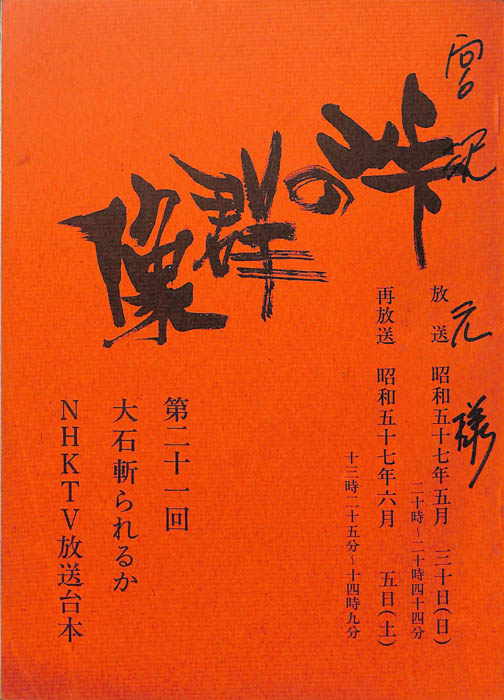 峠の群像
放送 昭和五十七年五月 三十日(日)
二十時〜二十時四十四分
再放送 昭和五十七年六月 五日(土)
十三時二十五分〜十四時九分
第二十一回
大石斬られるか
NHKTV放送台本
元様